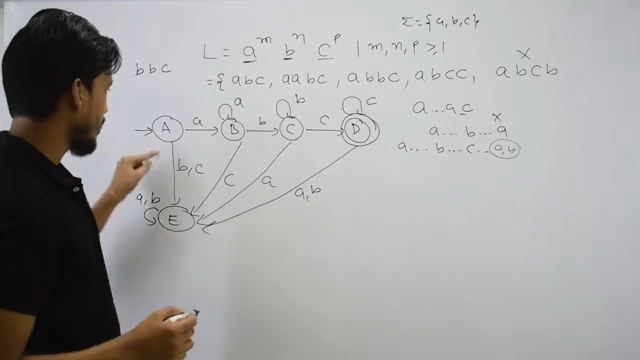 Σ = {a, b, c}
L = a^m b^n c^p | m, n, p ≥ 1
bbc
= { abc, aabc, abbc, abcc, abcb
x
a b c
a b c
A B C D
b, c c a a, b
a, b
E
a...ac
x
a... b...a
a.... b....c...a, b